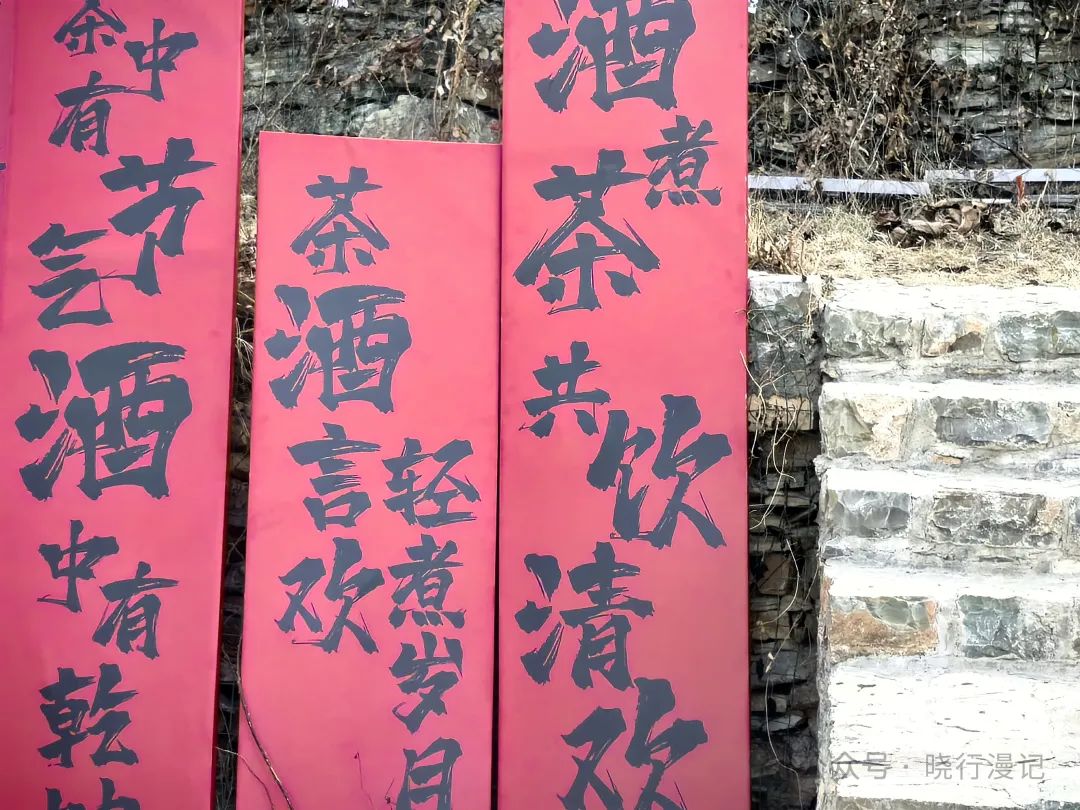 茶中有节气酒中有乾
茶酒言欢
轻煮岁月
酒煮茶共饮清欢
众号 · 晓行漫记